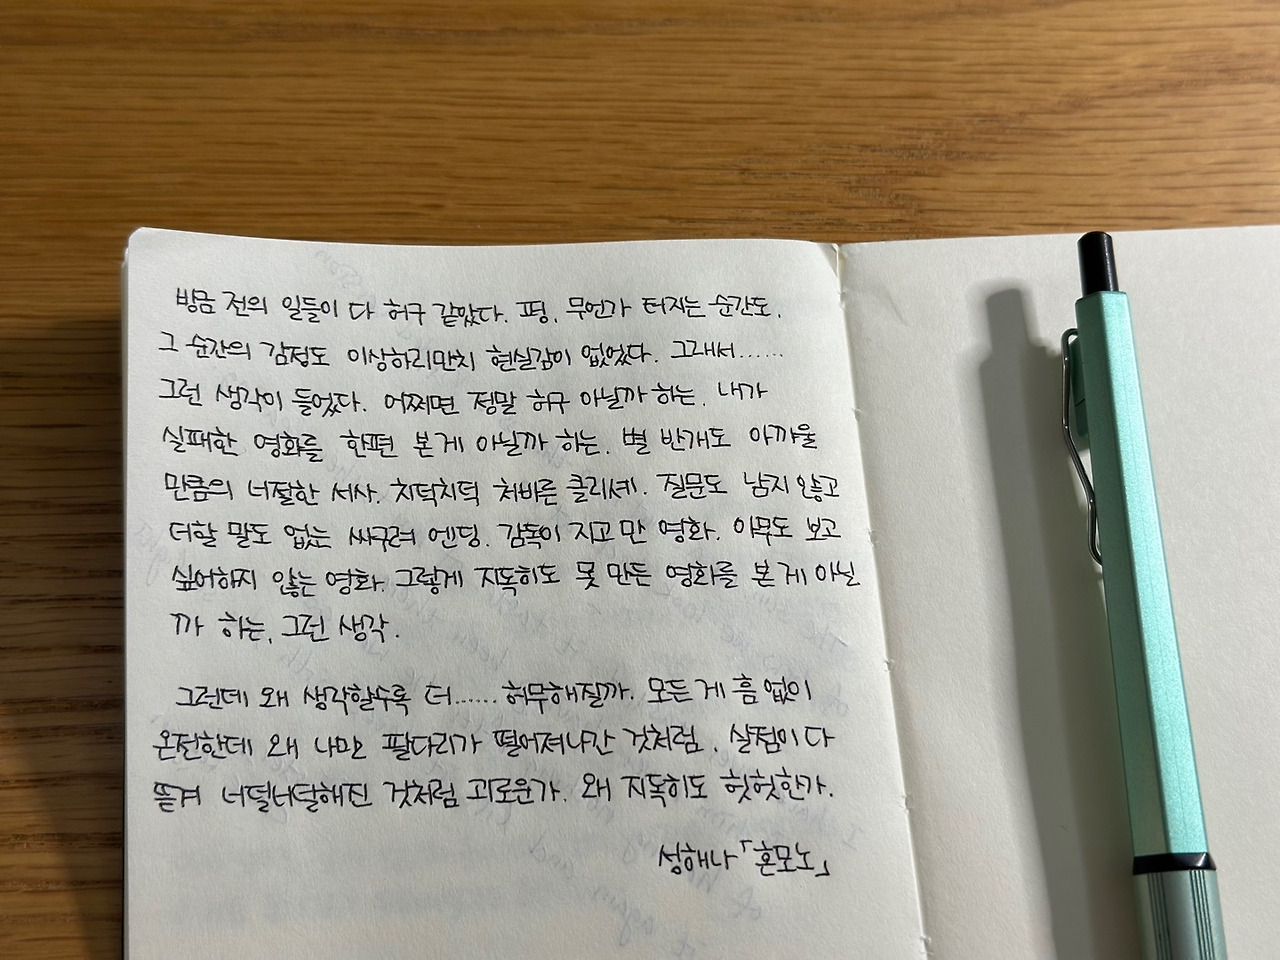 방금 전의 일들이 다 허구 같았다. 펑, 무언가 터지는 순간도,
그 순간의 감정도 이상하리만치 현실감이 없었다. 그래서……
그런 생각이 들었다. 어쩌면 정말 허구 아닐까 하는, 내가
실패한 영화를 한편 본 게 아닐까 하는. 별 반개도 아까울
만큼의 너절한 서사. 치덕치덕 처바른 클리셰. 질문도 남지 않고
더할 말도 없는 싸구려 엔딩. 감독이 지고 만 영화. 아무도 보고
싶어하지 않는 영화. 그렇게 지독히도 못 만든 영화를 본 게 아닐
까 하는, 그런 생각.
그런데 왜 생각할수록 더…… 허무해질까. 모든 게 흠 없이
온전한데 왜 나만 팔다리가 떨어져나간 것처럼, 살점이 다
뜯겨 너덜너덜해진 것처럼 괴로운가. 왜 지독히도 헛헛한가.
성해나 「혼모노」